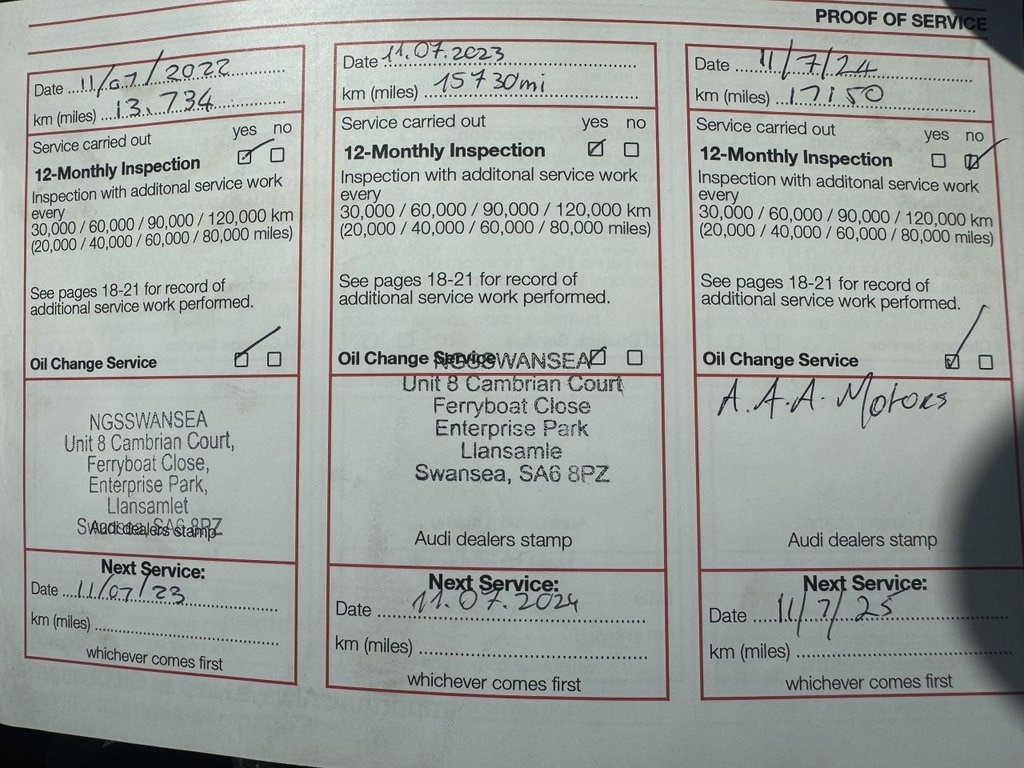 PROOF OF SERVICE
Date 11/07/2022
km (miles) 13,734
Service carried out yes no
12-Monthly Inspection
Inspection with additonal service work
every
30,000 / 60,000 / 90,000 / 120,000 km
(20,000 / 40,000 / 60,000 / 80,000 miles)
See pages 18-21 for record of
additional service work performed.
Oil Change Service
NGSSWANSEA
Unit 8 Cambrian Court,
Ferryboat Close,
Enterprise Park,
Llansamlet
Swansea, SA6 8PZ
Audi dealers stamp
Next Service:
Date 11/07/23
km (miles)
whichever comes first
Date 11.07.2023
km (miles) 15730mi
Service carried out yes no
12-Monthly Inspection
Inspection with additonal service work
every
30,000 / 60,000 / 90,000 / 120,000 km
(20,000 / 40,000 / 60,000 / 80,000 miles)
See pages 18-21 for record of
additional service work performed.
Oil Change Service
NGSSWANSEA
Unit 8 Cambrian Court
Ferryboat Close
Enterprise Park
Llansamle
Swansea, SA6 8PZ
Audi dealers stamp
Next Service:
Date 11.07.2024
km (miles)
whichever comes first
Date 11/7/24
km (miles) 17150
Service carried out yes no
12-Monthly Inspection
Inspection with additonal service work
every
30,000 / 60,000 / 90,000 / 120,000 km
(20,000 / 40,000 / 60,000 / 80,000 miles)
See pages 18-21 for record of
additional service work performed.
Oil Change Service
A.A.A. Motors
Audi dealers stamp
Next Service:
Date 11/7/25
km (miles)
whichever comes first